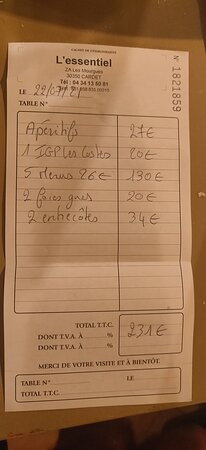 CACHET DE L'ÉTABLISSEMENT
N° 1821859
L'essentiel
ZA Les Mourgues
30350 CARDET
Tél : 04 34 13 50 81
LE 22/07/21
TABLE N°
Apéritifs 27€
1 IGP les Costes 20€
5 Menus 26€ 130€
2 foies gras 20€
2 entrecôtes 34€
TOTAL T.T.C. 231€
DONT T.V.A. À %
DONT T.V.A. À %
MERCI DE VOTRE VISITE ET À BIENTÔT.
TABLE N° LE
TOTAL T.T.C.